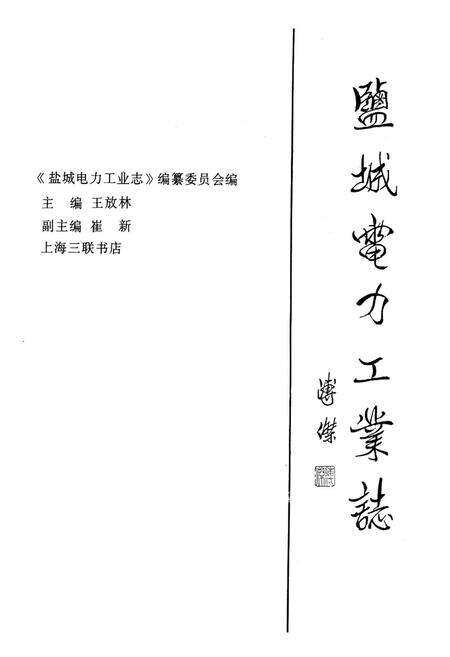 鹽城電力工業誌
溥傑
《盐城电力工业志》编纂委员会编
主 编 王放林
副主编 崔 新
上海三联书店